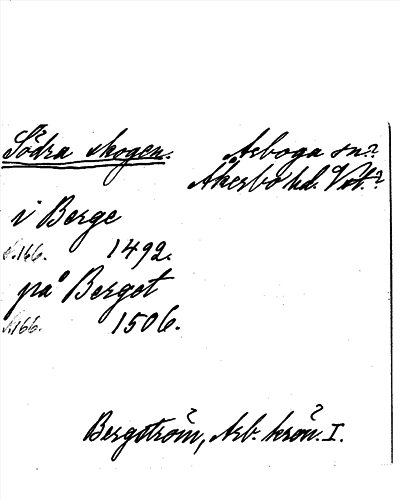 Södra skogen. Arboga sn.?
Åkerbo hd. Vstm.?
i Berge
s.166. 1492.
på Berget
s.166. 1506.
Bergström, Arb. krön. I.